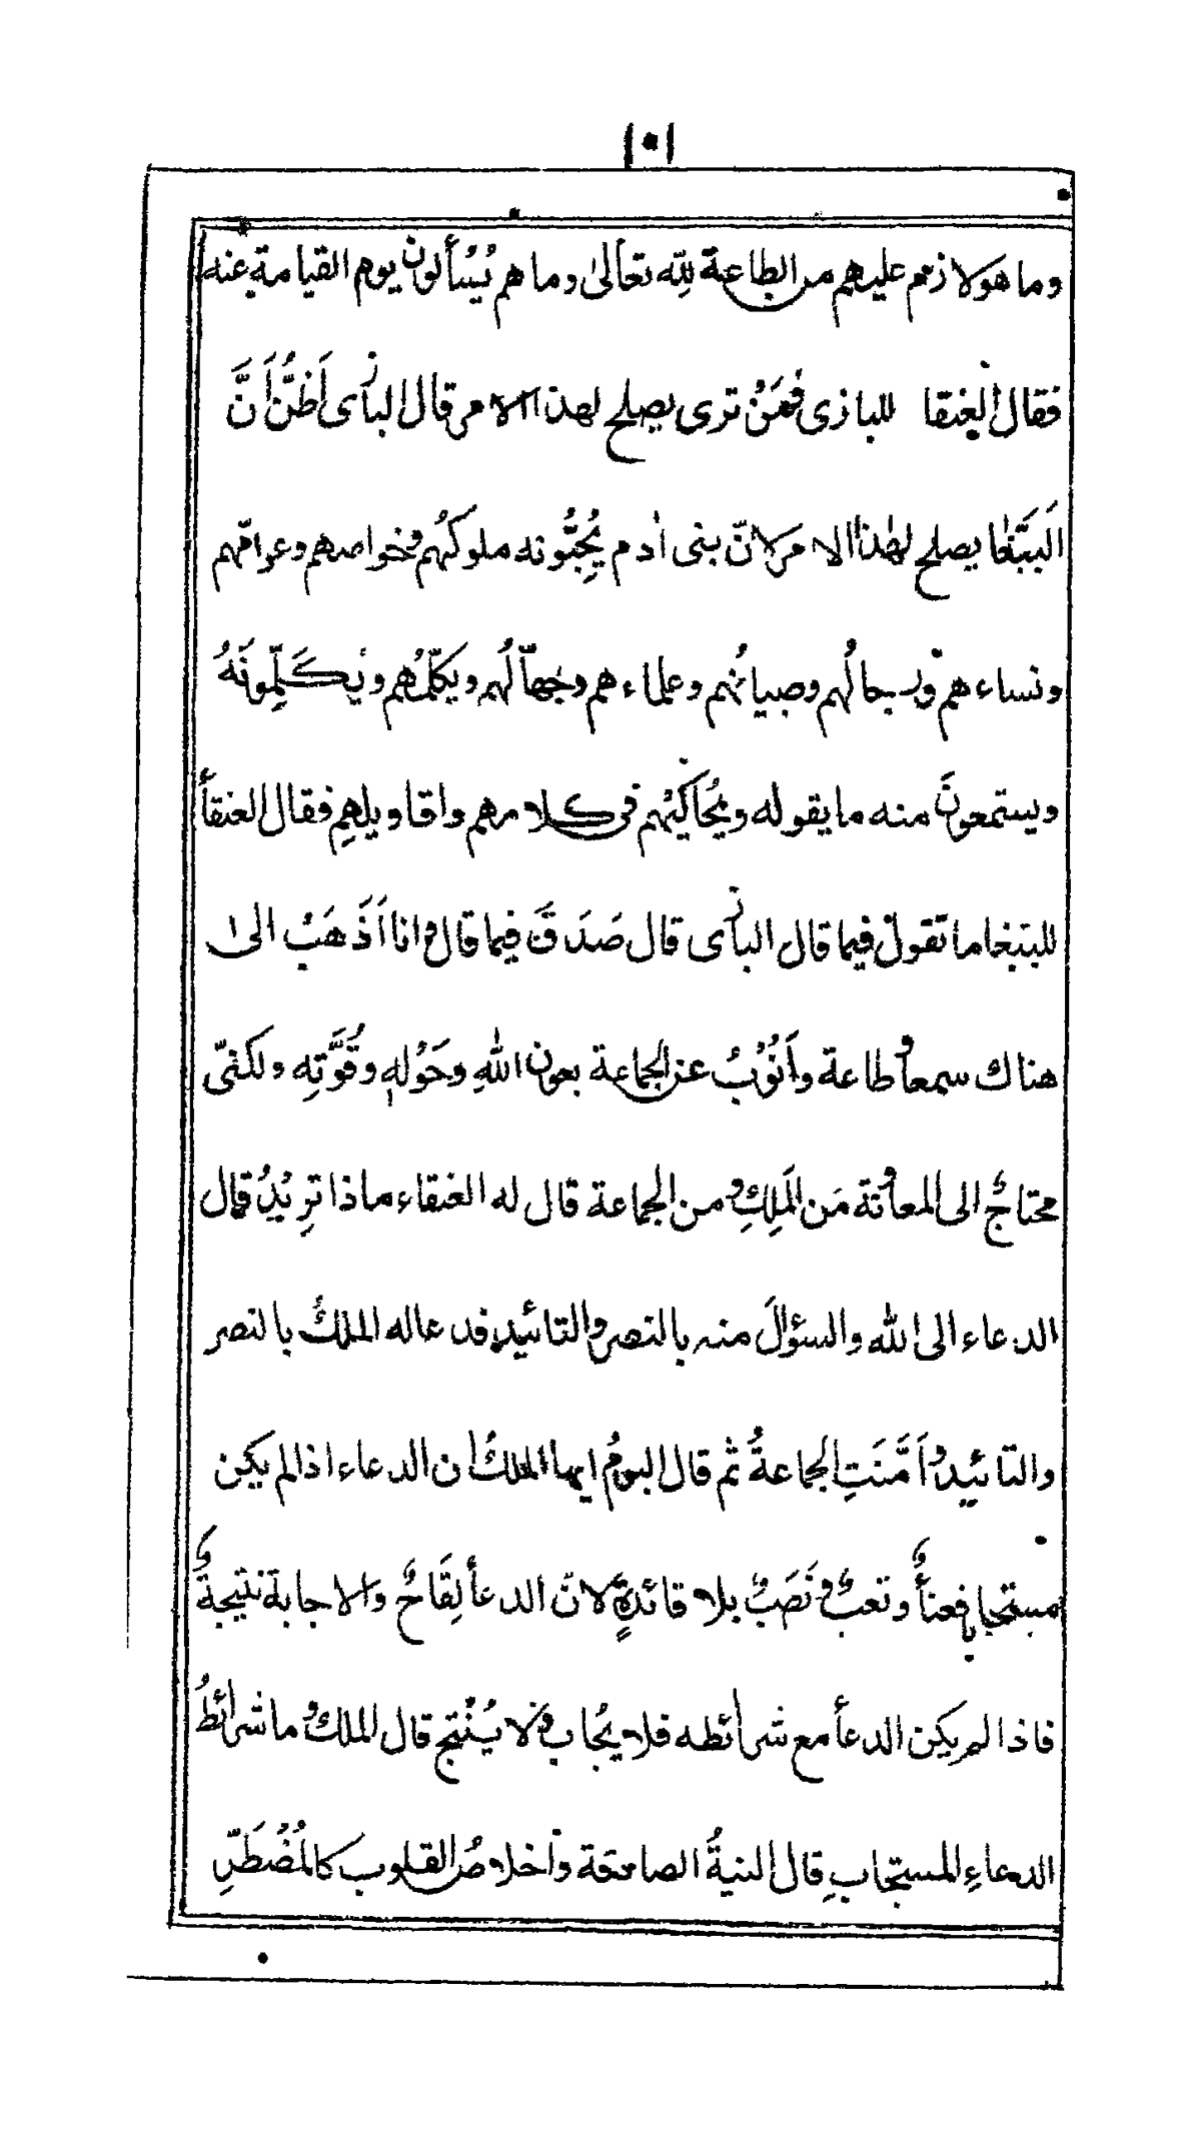 ١٠١
وما هو لازم عليهم من الطاعة لِلّه تعالىٰ وما هم يُسْأَلون يوم القيامة عنه
فقال العنقا للبازى فمَنْ ترى يصلح لهذا الامر قال البازى اَظُنُّ اَنَّ
الَببَّغا يصلح لهٰذا الامر لانّ بنى اٰدم يُحِبُّونه ملوكُهُم وخواصهم وعوامّهم
ونساءهم ورجالُهم وصبيانُهم وعلماءهم وجهّالُهم ويكلّمُهُم ويُكَلِّمُونَهُ
ويستمعونَ منه ما يقوله ويُحاكيْهم فى كلامهم واقاويلهِم فقال العنقأ
للببغا ما تقول فيما قال البازى قال صَدَقَ فيما قال وانا اَذَهَبُ الىٰ
هناك سمعا وطاعة وأَنُوْبُ عن الجماعة بعون اللهِ وحَوْلهٖ وقُوَّتِهِ ولكنّى
محتاجٌ الى المعاونة مَن المَلِكِ ومن الجماعة قال له العنقاء ماذا تريْدُ قال
الدعاء الى الله والسؤالَ منه بالنصر والتائيد فدعا له الملكُ بالنصر
والتائيد واَمَّنَتِ الجماعةُ ثم قال البومُ ايها الملكُ ان الدعاء اذا لم يكن
مستجابا فعنأٌ وتعبٌ ونَصَبٌ بلا فائدةٍ لانّ الدعأ لِقَاحٌ والاجابة نتيجةٌ و
فاذا لم يكن الدعأ مع شرائطه فلا يُجاب ولا يُنْتج قال الملكُ وما شرائطُ
الدعاءِ المستجابِ قال النيةُ الصادقة واخلاصُ القلوب كالمُضْطَرِّ